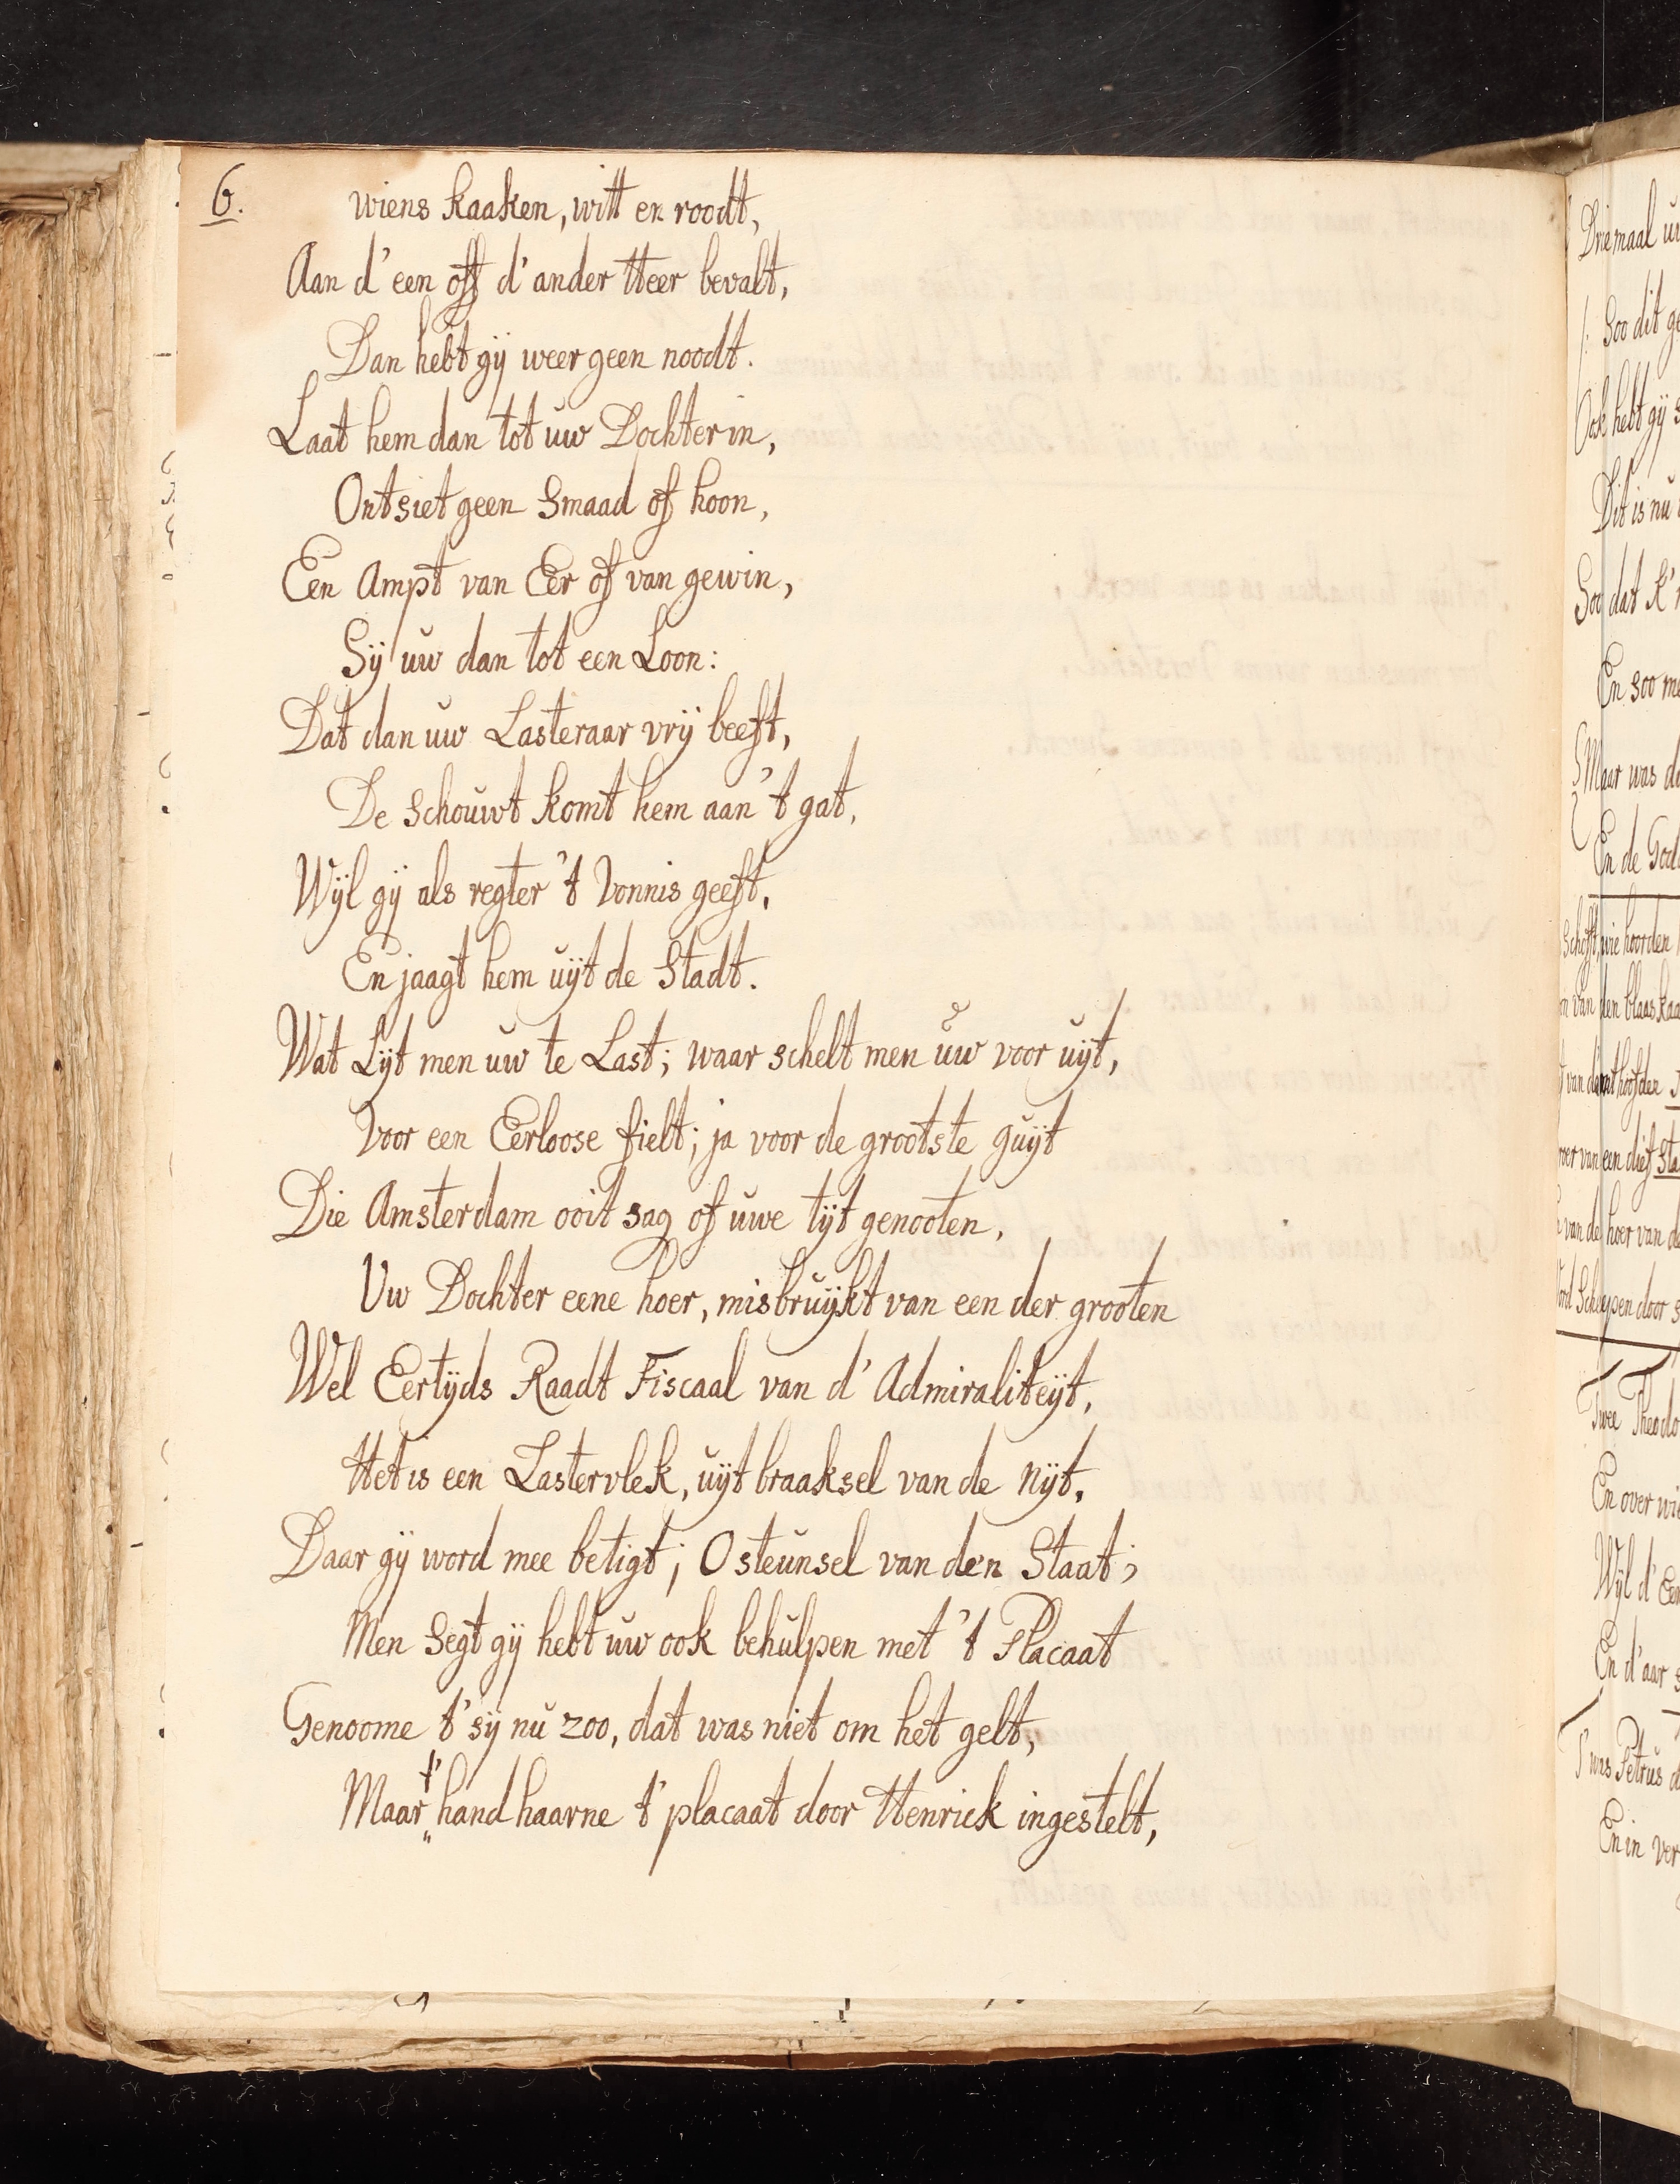 6.
wiens kaaken, witt en roodt,
Aan d'een off d'ander Heer bevalt,
Dan hebt gij weer geen noodt.
Laat hem dan tot uw Dochter in,
Ontsiet geen Smaad of hoon,
Een Ampt van Eer of van gewin,
Sij uw dan tot een Loon:
Dat dan uw Lasteraar vrij beeft,
De Schouwt komt hem aan 't gat,
Wijl gij als regter 't Vonnis geeft,
En jaagt hem uijt de Stadt.
Wat Lijt men uw te Last; waar schelt men uw voor uijt,
Voor een Eerloose fielt; ja voor de grootste guijt
Die Amsterdam ooit sag of uwe tijt genooten,
Uw Dochter eene hoer, misbruijkt van een der grooten
Wel Eertijds Raadt Fiscaal van d' Admiraliteijt,
Het is een Lastervlek, uijt braaksel van de Nijt,
Daar gij word mee betigt; O steunsel van den Staat;
Men Segt gij hebt uw ook behulpen met 't Placaat
Genoome t' sij nu zoo, dat was niet om het gelt,
Maar t' hand haavne t' placaat door Henrick ingestelt,
Driemaal
Soo dit
Ook hebt gij
Dit is nu
Soo dat k'
En soo
Maar was
En de
wie hoorden
van den
een dief
van de hoer van
door
Twee
En over
Wijl d'
En d'aar
T was Petrus
En in